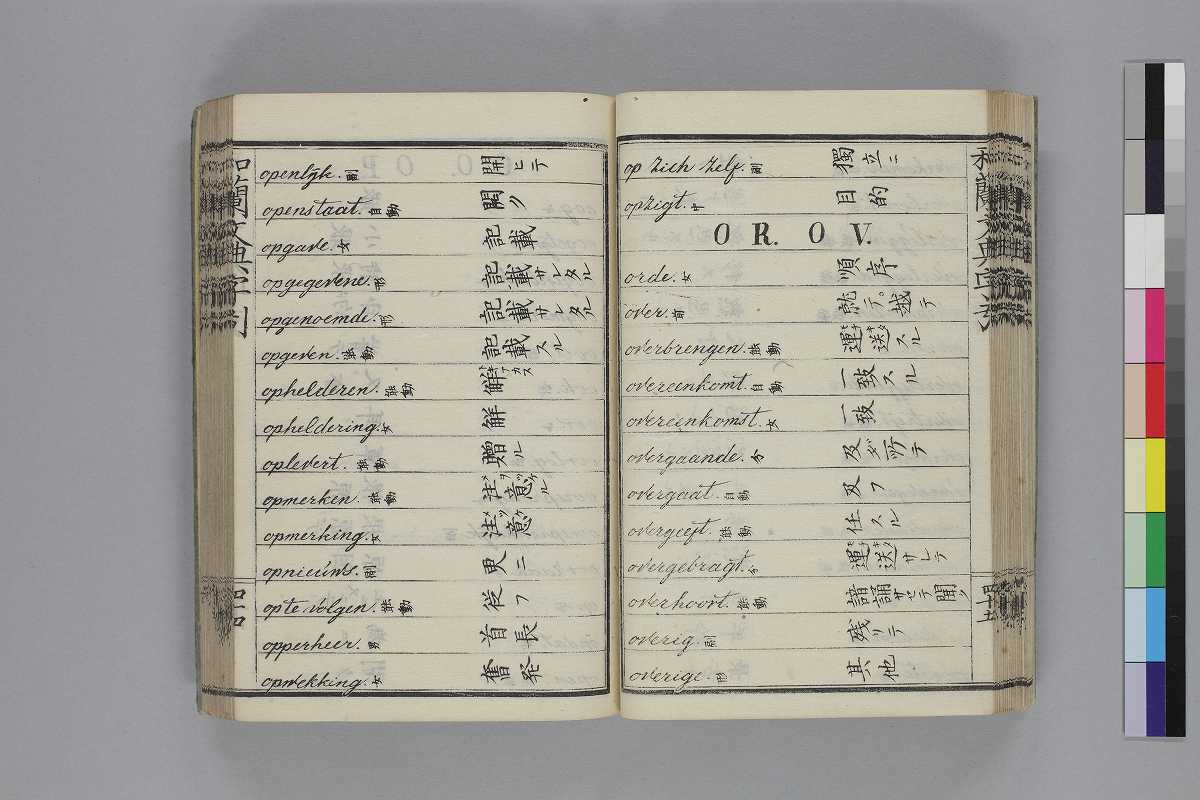 openlijk. 副 開ヒテ
openstaat. 自動 開ク
opgave. 女 記載
opgegevene. 形 記載サレタル
opgenoemde. 形 記載サレタル
opgeven. 能動 記載スル
ophelderen. 能動 解アカス
opheldering. 女 解
oplevert. 能動 贈ル
opmerken. 能動 注意スル
opmerking. 女 注意
opnieuws. 副 更ニ
op te volgen. 能動 従フ
opperheer. 男 首長
opwekking. 女 奮発
op zich zelf. 副 獨立ニ
opzigt. 中 目的
O R. O V.
orde. 女 順序
over. 前 就テ 越テ
overbrengen. 能動 運送スル
overeenkomt. 自動 一致スル
overeenkomst. 女 一致
overgaande. 分 及ダ所テ
overgaat. 自動 及フ
overgeeft. 能動 任スル
overgebragt. 分 運送サレテ
overhoort. 能動 諳誦サセテ聞ク
overig. 副 残リテ
overige. 形 其他